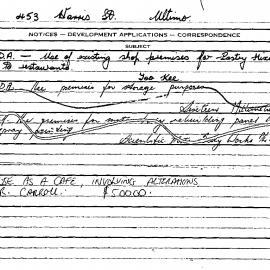 453 Harris St. Ultimo
NOTICES — DEVELOPMENT APPLICATIONS — CORRESPONDENCE
SUBJECT
D.A. — Use of existing shop premises for Pastry
to restaurants
Too Kee
D.A. Use premises for storage purposes
of the premises for motor body rebuilding panel
spray painting
Scientific Body Works
AS A CAFE, INVOLVING ALTERATIONS
CARROLL. $50000.